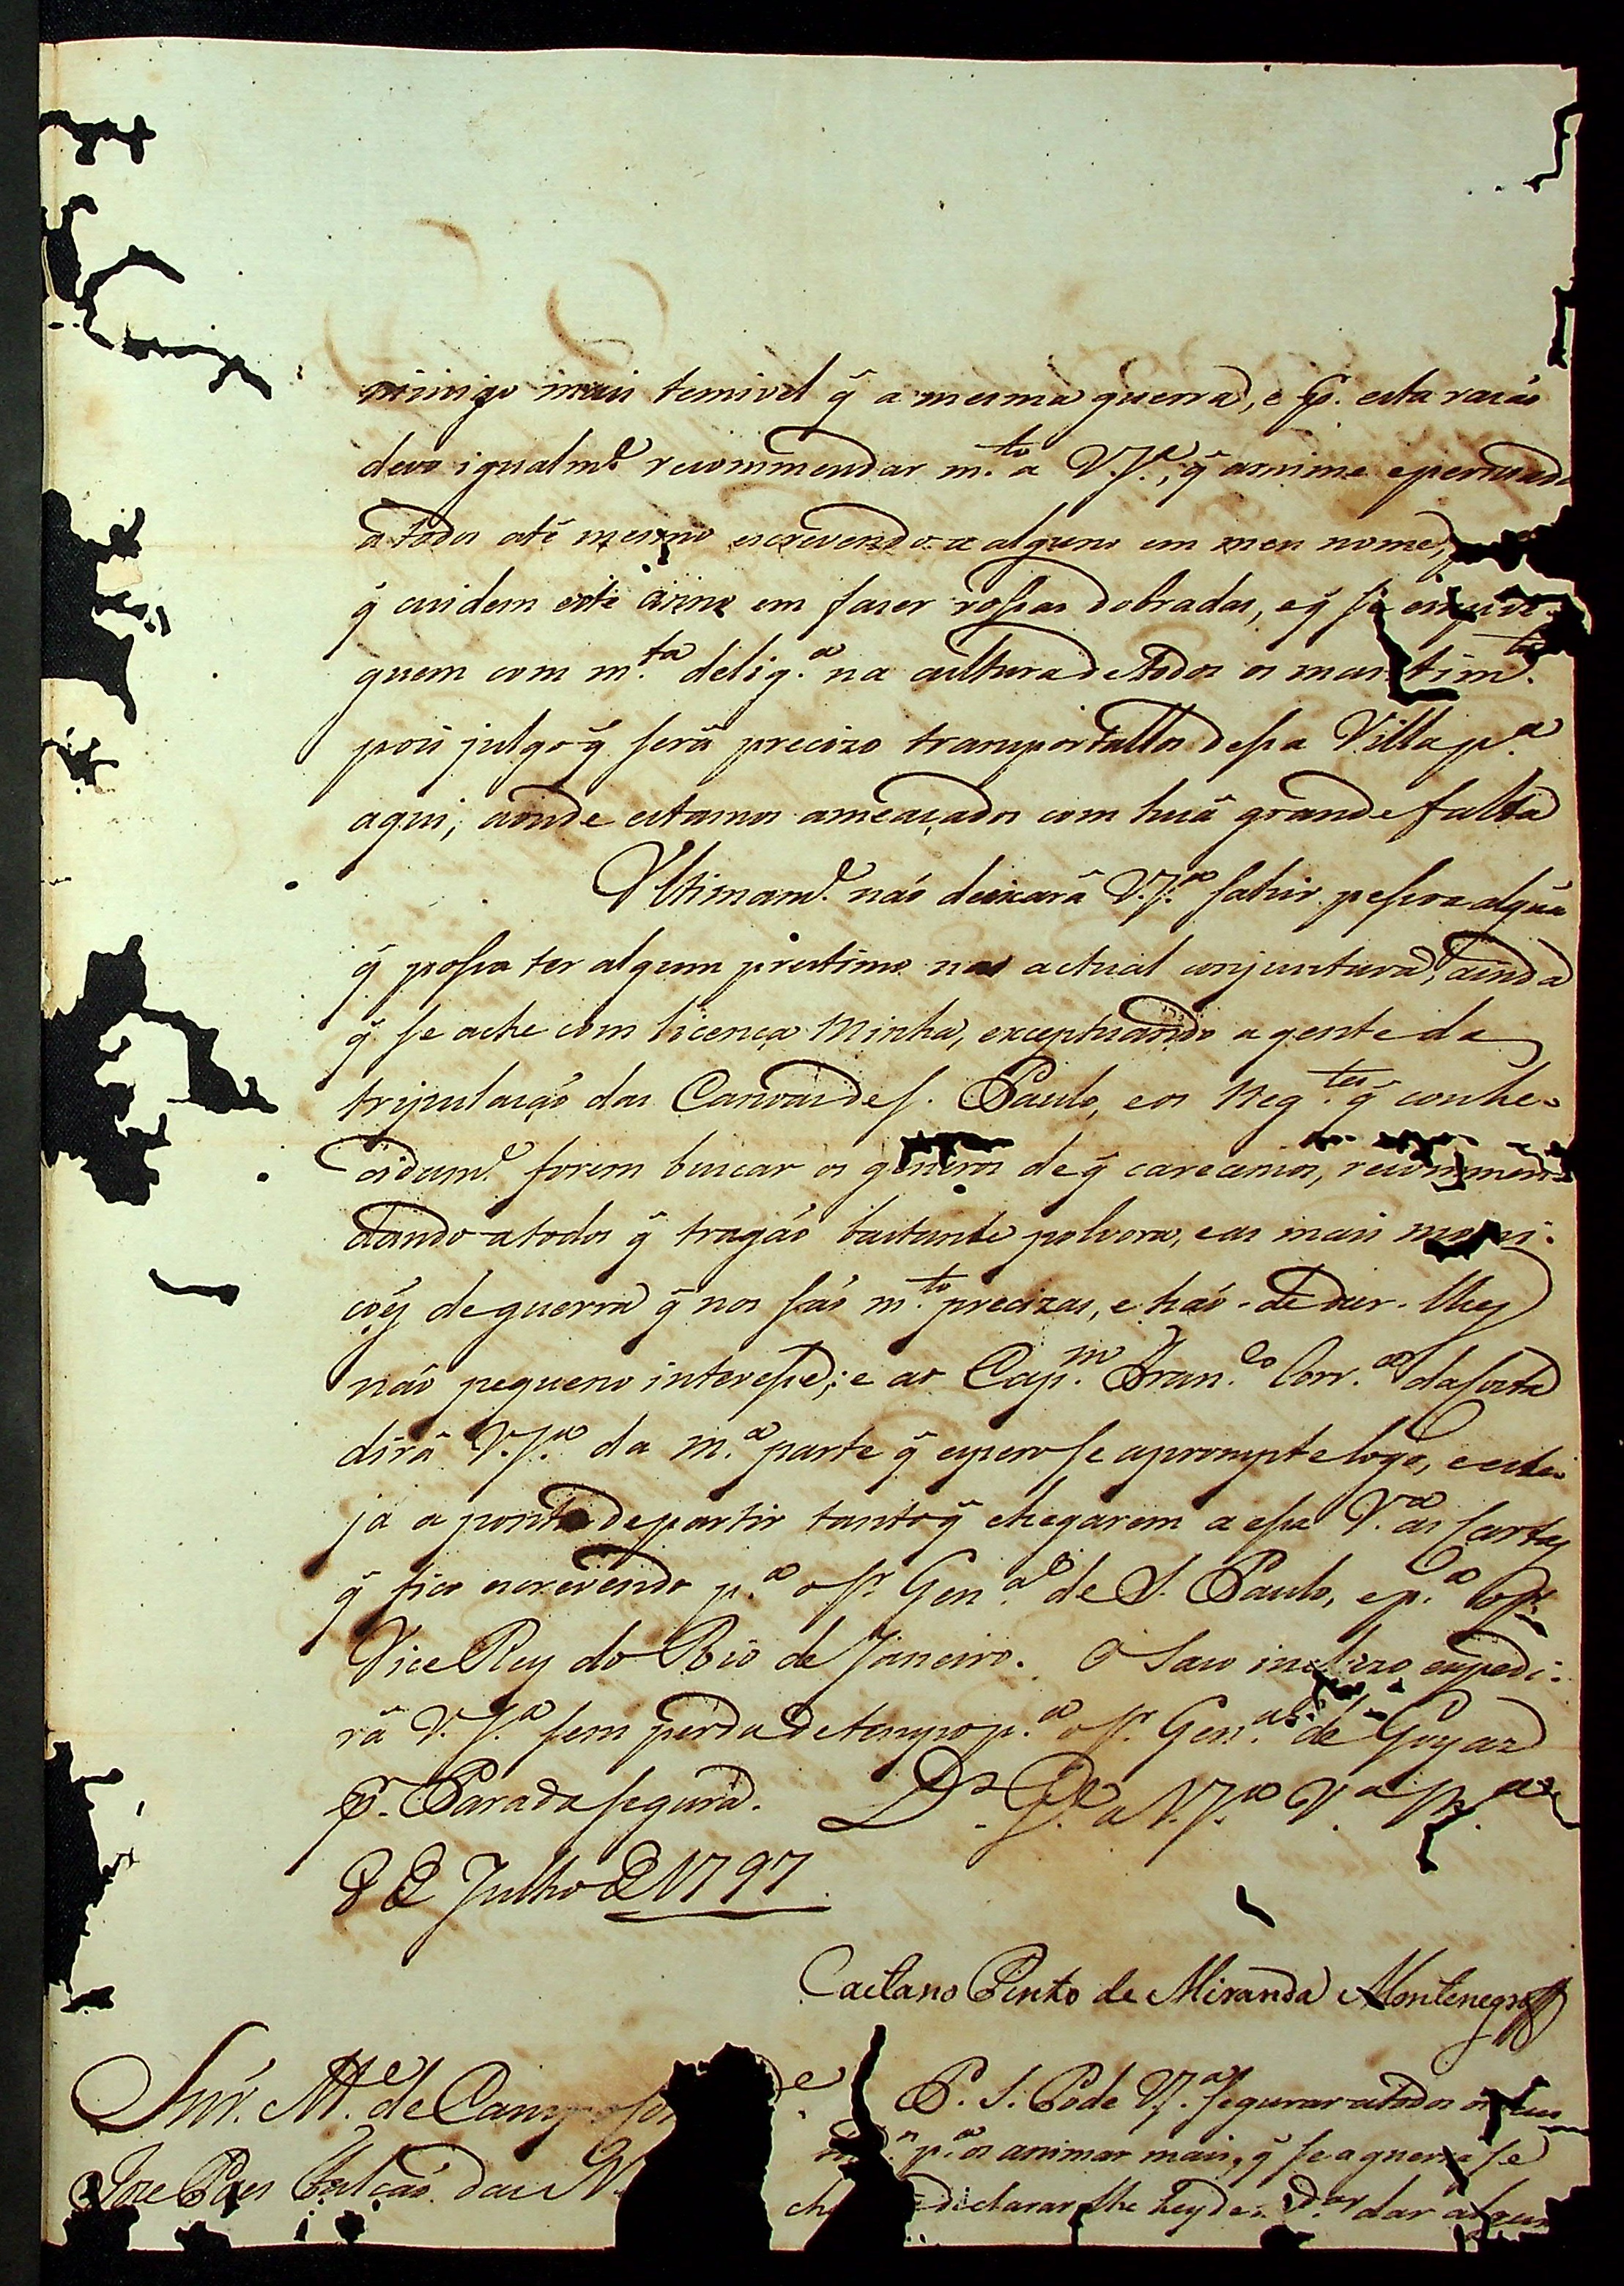 nimigo mais temivel q̃ a mesma guerra, e p. esta razaõ
devo igualm.e recommendar m.to a V.S.a, q̃ annime e persuada
a todos até mesmo escrevendo a alguns em meu nome,
q̃ cuidem este anno em faser rossas dobradas, e q̃ se
guem com m.ta delig.a na cultura de todos os mantim.tos
pois julgo q̃ será precizo transportallos dessa Villa p.a
aqui, aonde estamos ameaçados com huã grande falta
Ultimam.e naõ deixará V.S.a sahir pessoa algũa
q̃ possa ter algum prestimo na actual conjuntura, ainda
q̃ se ache com licença Minha, exceptuando a gente da
tripulaçaõ das Canoas de S. Paulo, e os Neg.tes q̃ conhe-
cidam.e forem buscar os generos de q̃ carecemos, recommen-
dando a todos q̃ tragaõ bastante polvora, e as mais muni-
çoẽs de guerra q̃ nos saõ m.to precizas, e haõ-de dar-lhes
naõ pequeno interesse; e ao Cap.m Fran.co Corr.a da Costa
dirá V.S.a da m.a parte q̃ espero se aprompte logo, e este-
já a ponto de partir tanto q̃ chegarem a essa V.a as Cartas
q̃ fico escrevendo p.a o Sr. Gen.al de S. Paulo, e p.a o Sr.
Vice Rey do Rio de Janeiro. O Saco incluzo expedi-
rá V.S.a sem perda de tempo p.a o Sr. Gen.al de Goyaz
p. Parada segura. D.s G.e a V.S.a V.a Bella
8 de Julho de 1797
Caetano Pinto de Miranda Montenegro
Snr. M.e de Campo
Joze Paes Falcaõ das N
P. S. Pode V.S.a segurar a todos os seus
p.a os animar mais, q̃ se a guerra se
che declarar lhe hey de m.dar dar algum